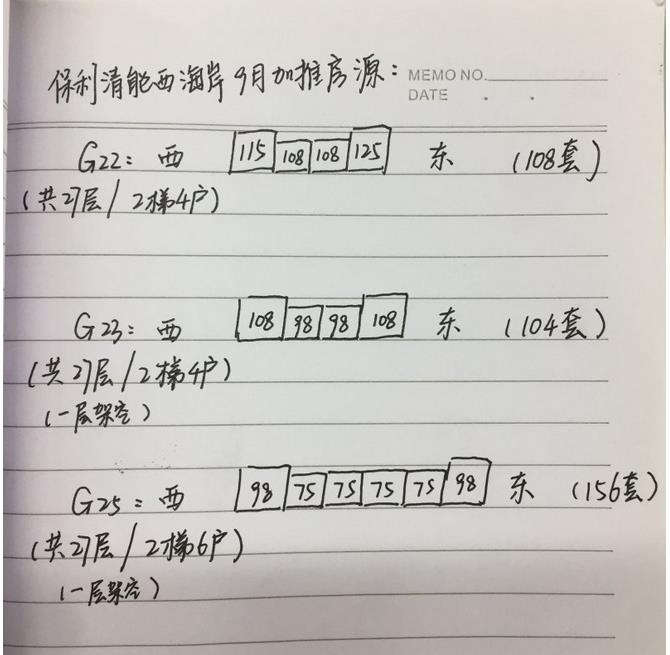 保利清能西海岸9月加推房源:
MEMO NO.
DATE . .
G22: 西 115 108 108 125 东 (108套)
(共27层/2梯4户)
G23: 西 108 98 98 108 东 (104套)
(共27层/2梯4户)
(一层架空)
G25: 西 98 75 75 75 75 98 东 (156套)
(共27层/2梯6户)
(一层架空)